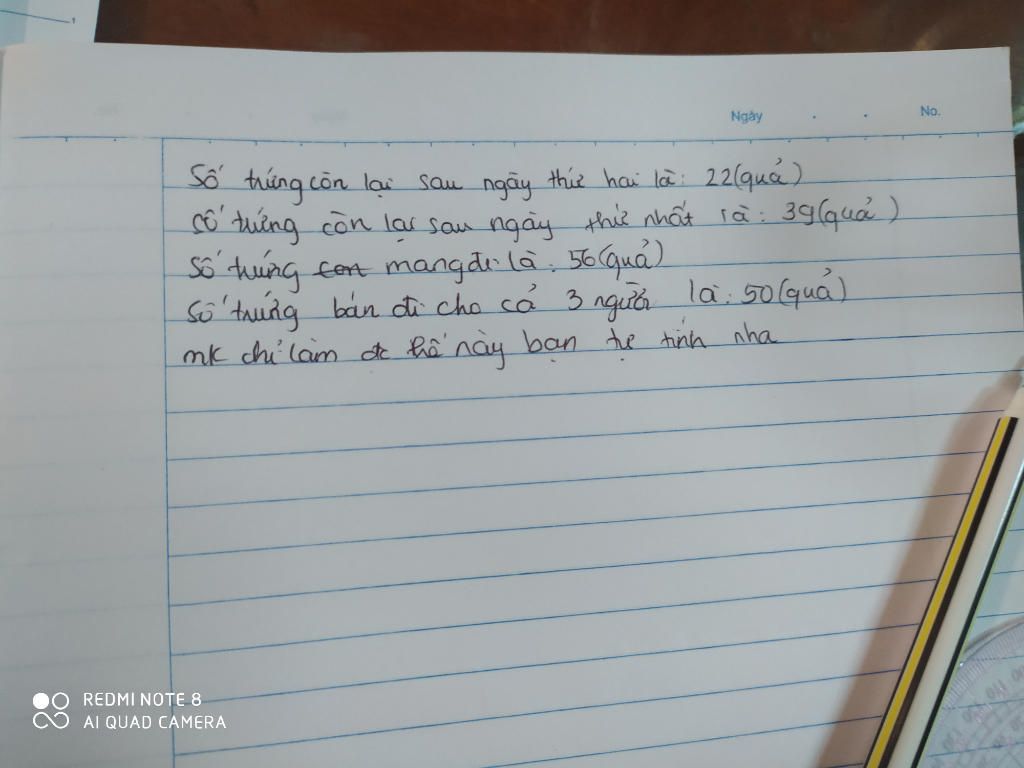 Ngày . . No.
Số trứng còn lại sau ngày thứ hai là: 22(quả)
Số trứng còn lại sau ngày thứ nhất là: 39(quả)
Số trứng con mang đi là: 56(quả)
Số trứng bán đi cho cả 3 người là: 50(quả)
mk chỉ làm đc thế này bạn tự tính nha
REDMI NOTE 8
AI QUAD CAMERA